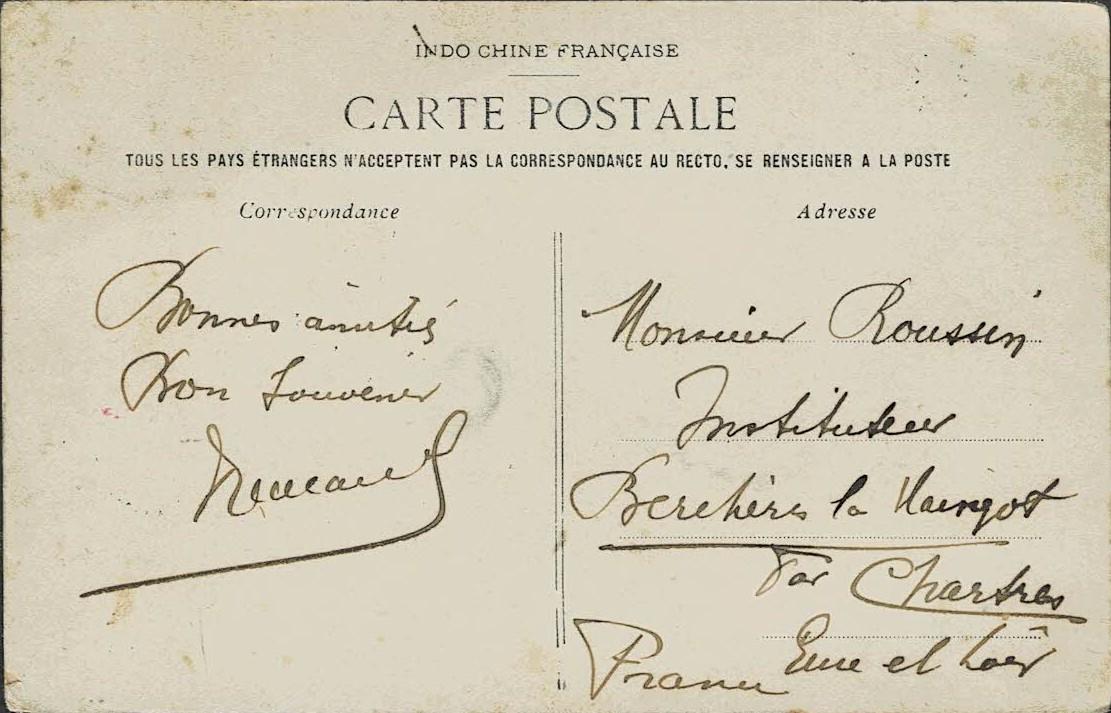 INDO CHINE FRANÇAISE
CARTE POSTALE
TOUS LES PAYS ÉTRANGERS N'ACCEPTENT PAS LA CORRESPONDANCE AU RECTO, SE RENSEIGNER A LA POSTE
Correspondance
Bonnes amitiés
Bon Souvenir
Adresse
Monsieur Roussin
Instituteur
Berchères la Maingot
par Chartres
Eure et Loir
France